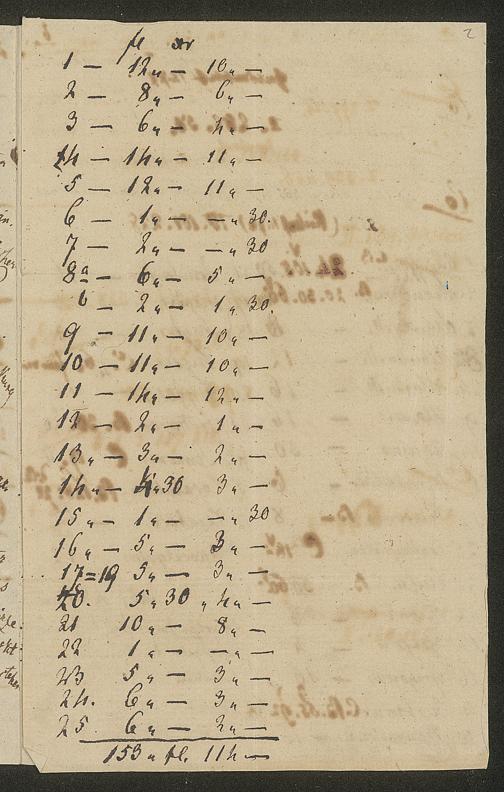 2
fl xr
1 — 12„ — 10„ —
2 — 8„ — 6„ —
3 — 6„ — 4„ —
4 — 14„ — 11„ —
5 — 12„ — 11„ —
6 — 1„ — —„ 30.
7 — 2„ — —„ 30
8a — 6„ — 5„ —
b — 2„ — 1„ 30.
9 — 11„ — 10„ —
10 — 11„ — 10„ —
11 — 14„ — 12„ —
12 — 2„ — 1„ —
13„ — 3„ — 2„ —
14„ — 4„ 30 3„ —
15„ — 1„ — —„ 30
16„ — 5„ — 3„ —
17=19 5„ — 3„ —
20. 5„ 30 „ 4„ —
21 10„ — 8„ —
22 1„ — —„ —
23 5„ — 3„ —
24. 6„ — 3„ —
25 6„ — 2„ —
153„ fl. 114„ —